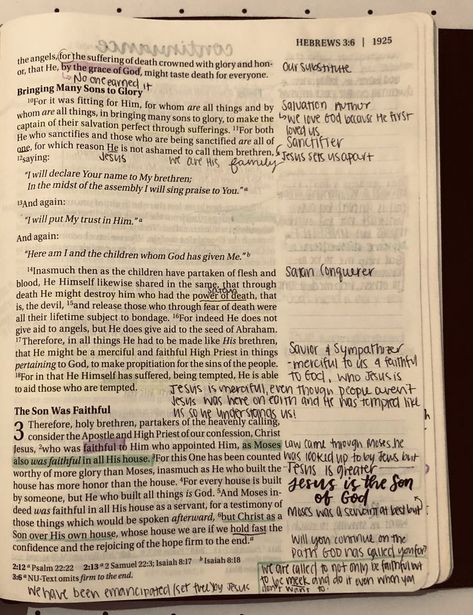 HEBREWS 3:6 | 1925
the angels, for the suffering of death crowned with glory and hon-
or, that He, by the grace of God, might taste death for everyone.
our substitute
No one earned it
Bringing Many Sons to Glory
10For it was fitting for Him, for whom are all things and by
whom are all things, in bringing many sons to glory, to make the
captain of their salvation perfect through sufferings. 11For both
He who sanctifies and those who are being sanctified are all of
one, for which reason He is not ashamed to call them brethren,
12saying:
Jesus
we are His family
Salvation Author
we love God because He first
loved us
Sanctifier
Jesus sets us apart
"I will declare Your name to My brethren;
In the midst of the assembly I will sing praise to You." a
13And again:
"I will put My trust in Him." a
And again:
"Here am I and the children whom God has given Me." b
14Inasmuch then as the children have partaken of flesh and
blood, He Himself likewise shared in the same, that through
death He might destroy him who had the power of death, that
is, the devil, 15and release those who through fear of death were
all their lifetime subject to bondage. 16For indeed He does not
give aid to angels, but He does give aid to the seed of Abraham.
17Therefore, in all things He had to be made like His brethren,
that He might be a merciful and faithful High Priest in things
pertaining to God, to make propitiation for the sins of the people.
18For in that He Himself has suffered, being tempted, He is able
to aid those who are tempted.
Satan Conquerer
Savior & Sympathizer
merciful to us & faithful
to God, who Jesus is
Jesus is merciful, even though people aren't
Jesus was here on earth and He was tempted like
us so He understands us!
The Son Was Faithful
3 Therefore, holy brethren, partakers of the heavenly calling,
consider the Apostle and High Priest of our confession, Christ
Jesus, 2who was faithful to Him who appointed Him, as Moses
also was faithful in all His house. 3For this One has been counted
worthy of more glory than Moses, inasmuch as He who built the
house has more honor than the house. 4For every house is built
by someone, but He who built all things is God. 5And Moses in-
deed was faithful in all His house as a servant, for a testimony of
those things which would be spoken afterward, 6but Christ as a
Son over His own house, whose house we are if we hold fast the
confidence and the rejoicing of the hope firm to the end. a
Law came through Moses he
was looked up to by Jews but
Jesus is greater
Jesus is the Son
of God
Moses was a servant at best but
Will you continue on the
path God has called you for?
we are called to not only be faithful but
to be meek and do it even when you
don't want to.
2:12 a Psalm 22:22 2:13 a 2 Samuel 22:3; Isaiah 8:17 b Isaiah 8:18
3:6 a NU-Text omits firm to the end.
We have been emancipated (set free) by Jesus